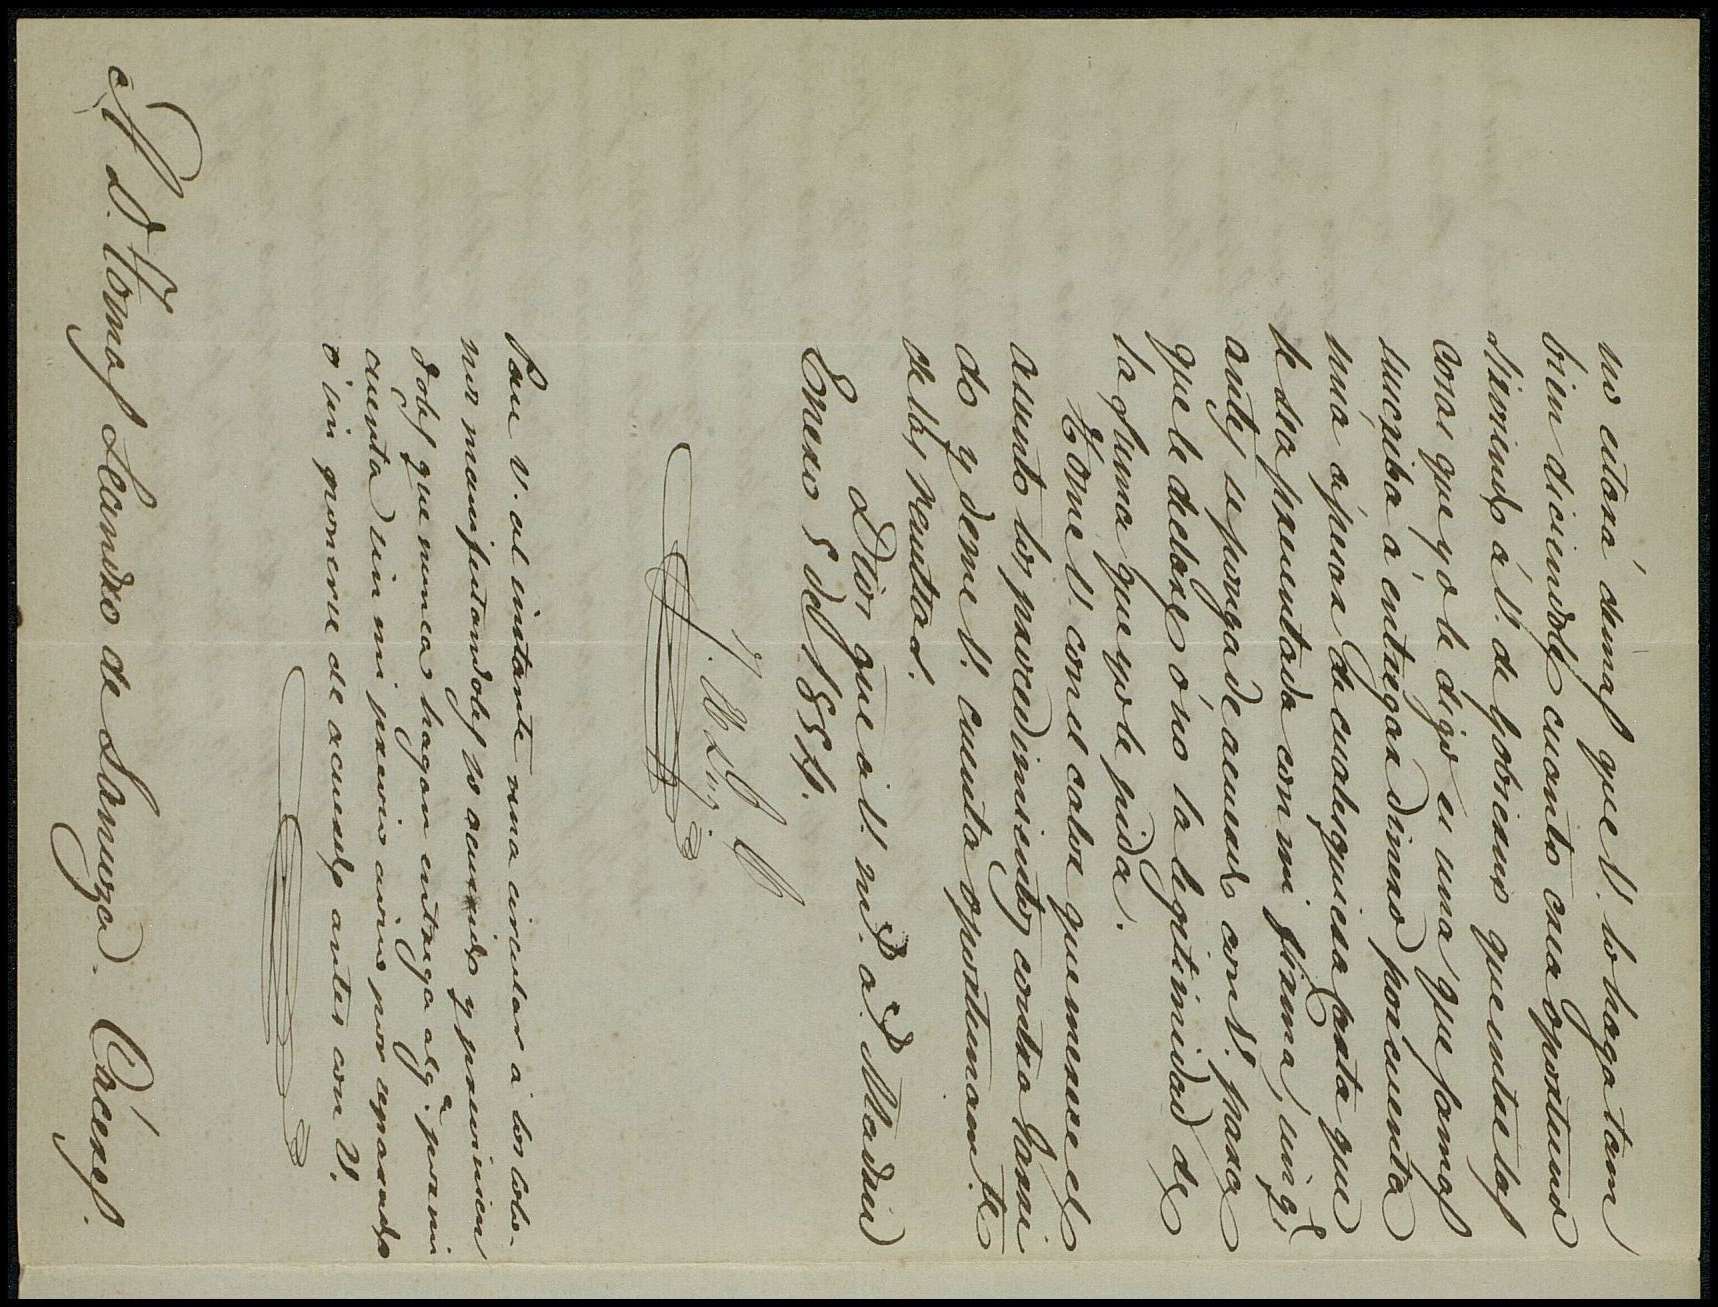 no estará demas que V. lo haga tam
bien diciendole cuanto crea oportuno
sirviendo á V. de gobierno que entre las
cosas que yo le digo es una que jamas
suscriba á entregar dinero por cuenta
mia á favor de cualesquiera carta que
le sea presentada con mi firma, sin q.e
antes se ponga de acuerdo con V. para
que le declare ó no la legitimidad de
la firma que yo le pida.
Tome V. con el calor que merece el
asunto los procedimientos contra
do y deme V. cuenta oportunam.te
de los resultad.
Dios gue a V. m.s a.s Madrid
Enero 5 de 1854.
Pase V. al instante una circular a los cole-
nos manifestandoles lo ocurrido y previnien
doles que nunca hagan entrega alg.a por mi
cuenta sin mi previo aviso por separado
o sin ponerse de acuerdo antes con V.
A D. Tomas Leandro de Sanuza. Cáceres.